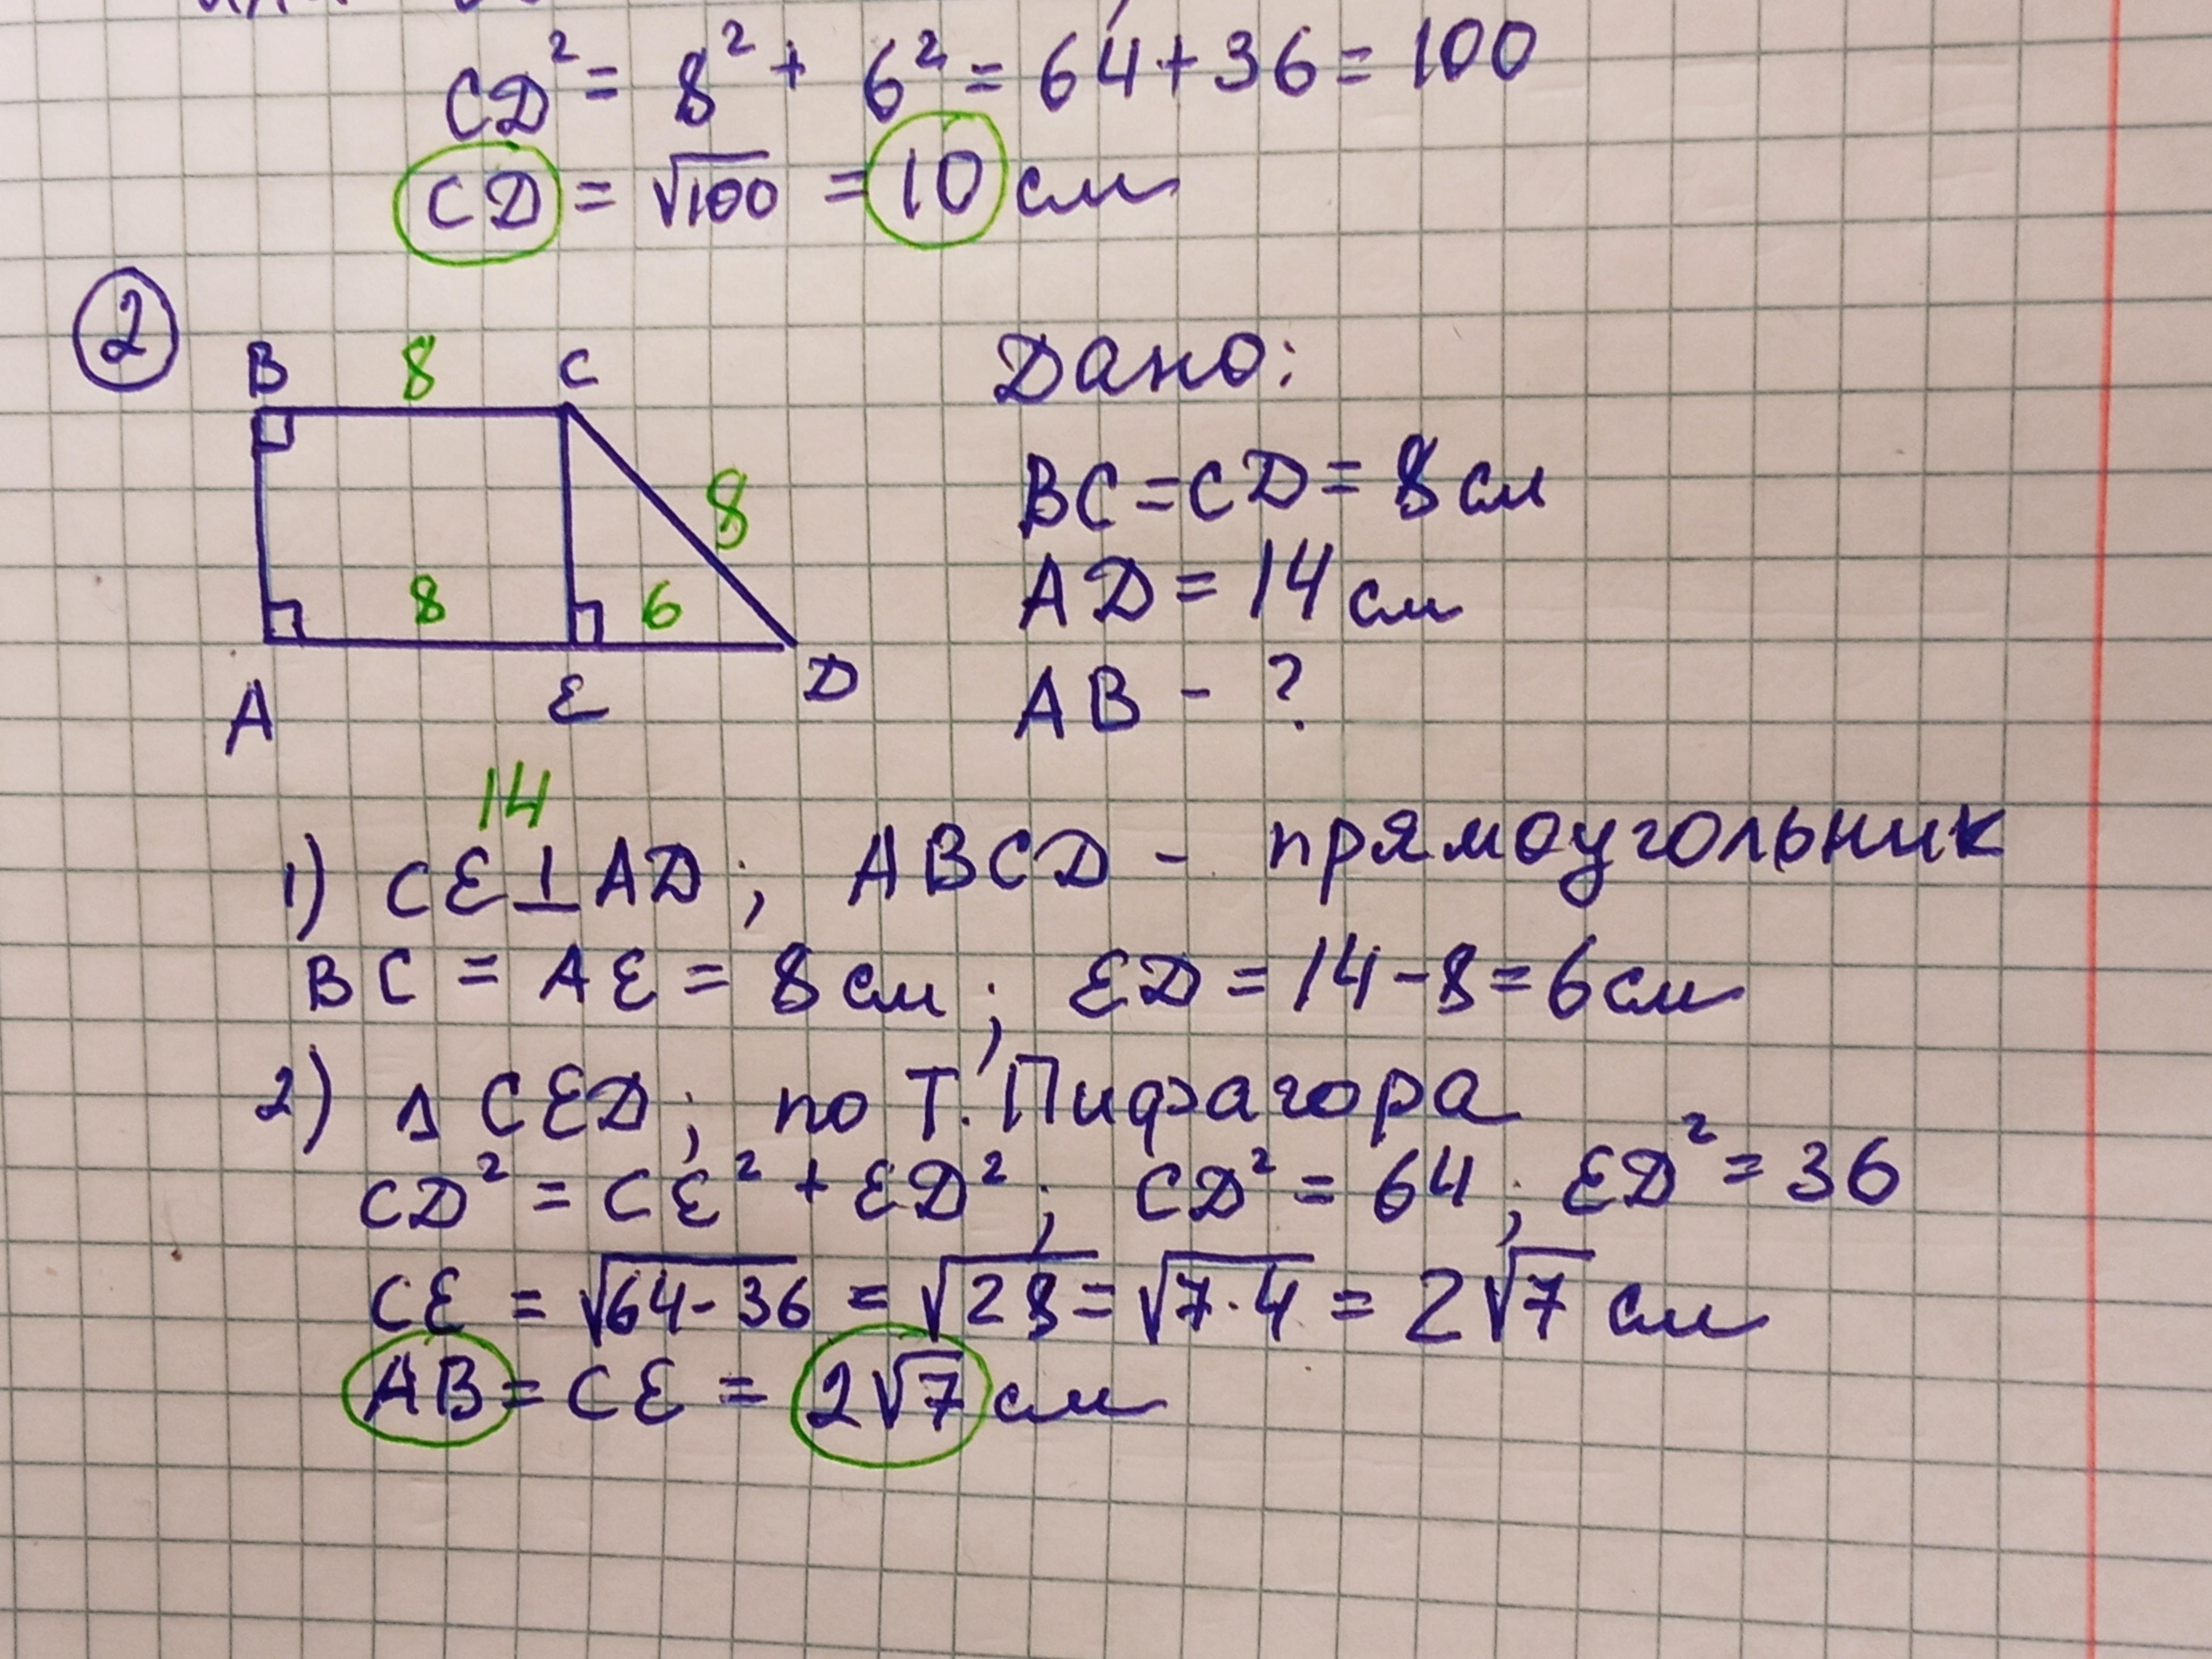 CD² = 8² + 6² = 64 + 36 = 100
CD = √100 = 10 см
2
B 8 C
8
8 6
A E D
14
Дано:
BC = CD = 8 см
AD = 14 см
AB - ?
1) CE ⊥ AD; ABCD - прямоугольник
BC = AE = 8 см; ED = 14 - 8 = 6 см
2) △ CED; по Т. Пифагора
CD² = CE² + ED²; CD² = 64; ED² = 36
CE = √64 - 36 = √28 = √7 · 4 = 2√7 см
AB = CE = 2√7 см